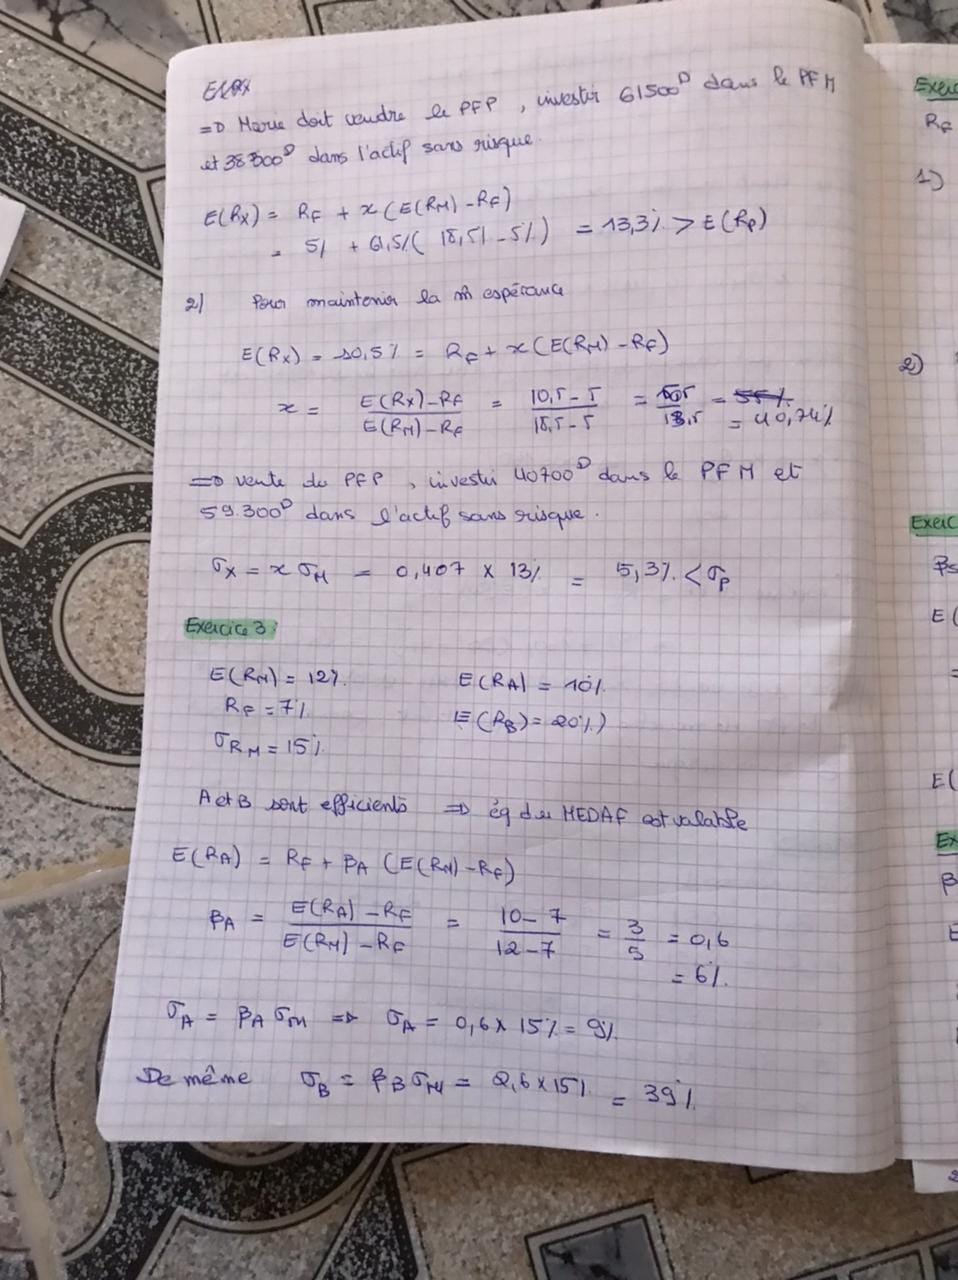 => Marie doit vendre le PFP, investir 61500ᴰ dans le PFM
et 38500ᴰ dans l'actif sans risque.
E(Rx) = RF + x (E(RM) - RF)
= 5% + 61,5% (18,5% - 5%) = 13,3% > E(Rp)
2) Pour maintenir la m̂ espérance
E(Rx) = 10,5% = RF + x (E(RM) - RF)
x = E(Rx) - RF / E(RM) - RF = 10,5 - 5 / 18,5 - 5 = 5,5 / 13,5 = 55% = 40,74%
=> vente du PFP, investir 40700ᴰ dans le PFM et
59.300ᴰ dans l'actif sans risque.
σx = x σM = 0,407 × 13% = 5,3% < σp
Exercice 3:
E(RM) = 12% E(RA) = 10%
RF = 7% E(RB) = 20%)
σRM = 15%
A et B sont efficients => éq du MEDAF est valable
E(RA) = RF + βA (E(RM) - RF)
βA = E(RA) - RF / E(RM) - RF = 10 - 7 / 12 - 7 = 3/5 = 0,6
= 6%
σA = βA σM => σA = 0,6 × 15% = 9%
De même σB = βB σM = 2,6 × 15% = 39%
Exerc
RF
1)
2)
Exerc
βs
E(
=
E(
Ex
β
E